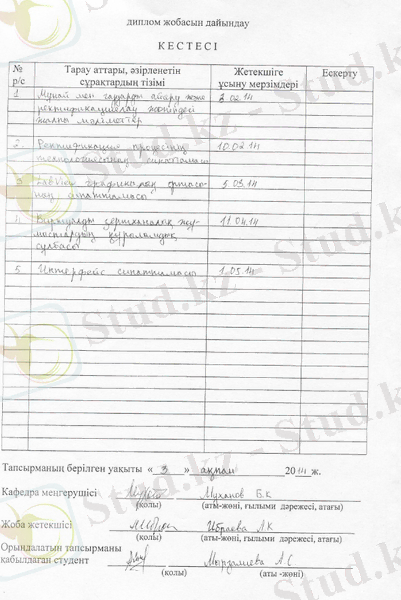 диплом жобасын дайындау
КЕСТЕСІ
№ р/с
Тарау аттары, әзірленетін сұрақтардың тізімі
Жетекшіге ұсыну мерзімдері
Ескерту
1 Мұнай мен газдарды айыру және
ректификациялау жөніндегі
жалпы мәліметтер
7.02.14
2. Ректификация процесінің
технологиясының сипаттамасы
10.02.14
3 LabView графикалық ортасы-
ның сипаттамасы
5.03.14
4 Виртуалды зертханалық жұ-
мыстардың құрылымдық
сұлбасы
11.04.14
5 Интерфейс сипаттамасы
1.05.14
Тапсырманың берілген уақыты « 3 » ақпан 2014 ж.
Кафедра меңгерушісі Муханов Б.К
(қолы) (аты-жөні, ғылыми дәрежесі, атағы)
Жоба жетекшісі Ибраева Л К
(қолы) (аты-жөні, ғылыми дәрежесі, атағы)
Орындалатын тапсырманы
қабылдаған студент А С
(қолы) (аты -жөні)
Stud.kz - Stud.kz